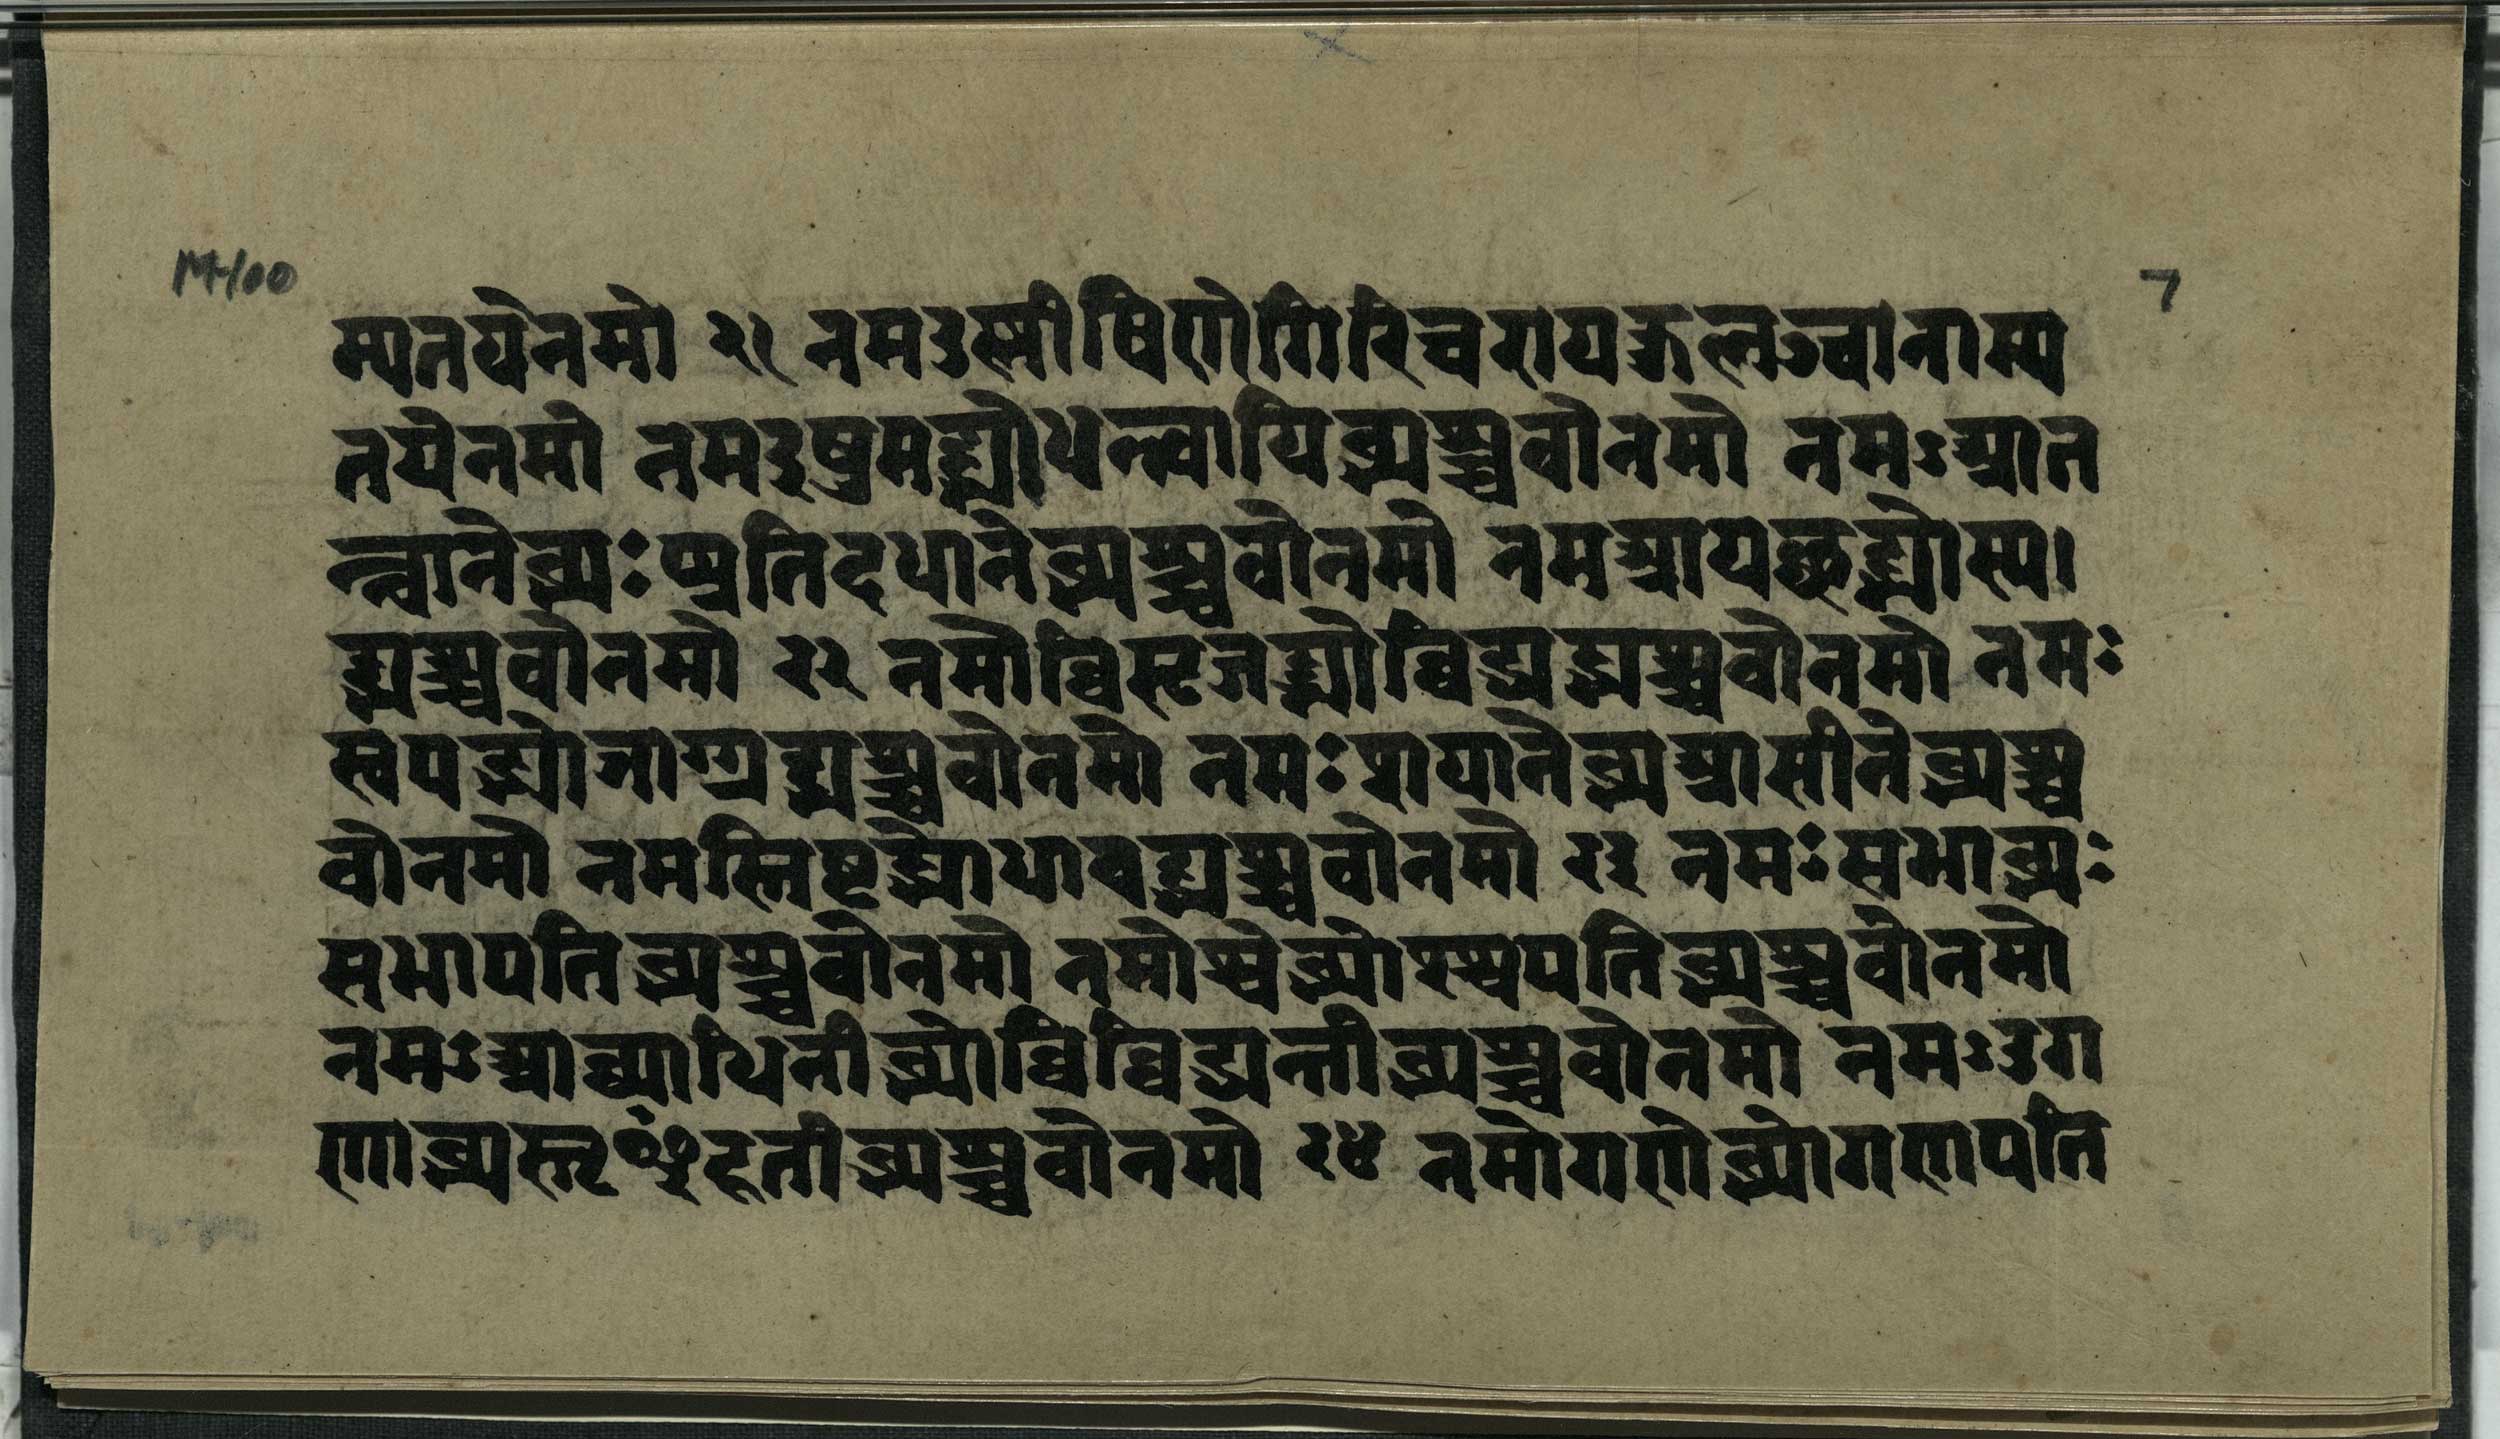 M-100
7
म्पतयेनमो २१ नमउष्णीषिणेगिरिचरायकुलुञ्चानाम्प
तयेनमो नमइषुमद्भ्योधन्वायिब्भ्यश्चवोनमो नमऽआत
न्वानेब्भ्यः प्रतिदधानेब्भ्यश्चवोनमो नमआयच्छद्भ्योस्य।
द्भ्यश्चवोनमो २२ नमोव्विसृजद्भ्योव्विद्ध्यद्भ्यश्चवोनमो नमः
स्वपद्भ्योजाग्ग्रद्भ्यश्चवोनमो नमः शयानेब्भ्यआसीनेब्भ्यश्च
वोनमो नमस्तिष्ठद्भ्योधावद्भ्यश्चवोनमो २३ नमः सभाब्भ्यः
सभापतिब्भ्यश्चवोनमो नमोश्वेब्भ्योश्वपतिब्भ्यश्चवोनमो
नमऽआव्याधिनीब्भ्योव्विविद्ध्यन्तीब्भ्यश्चवोनमो नमऽउग
णाब्भ्यस्तृᳪहतीब्भ्यश्चवोनमो २४ नमोगणेब्भ्योगणपति